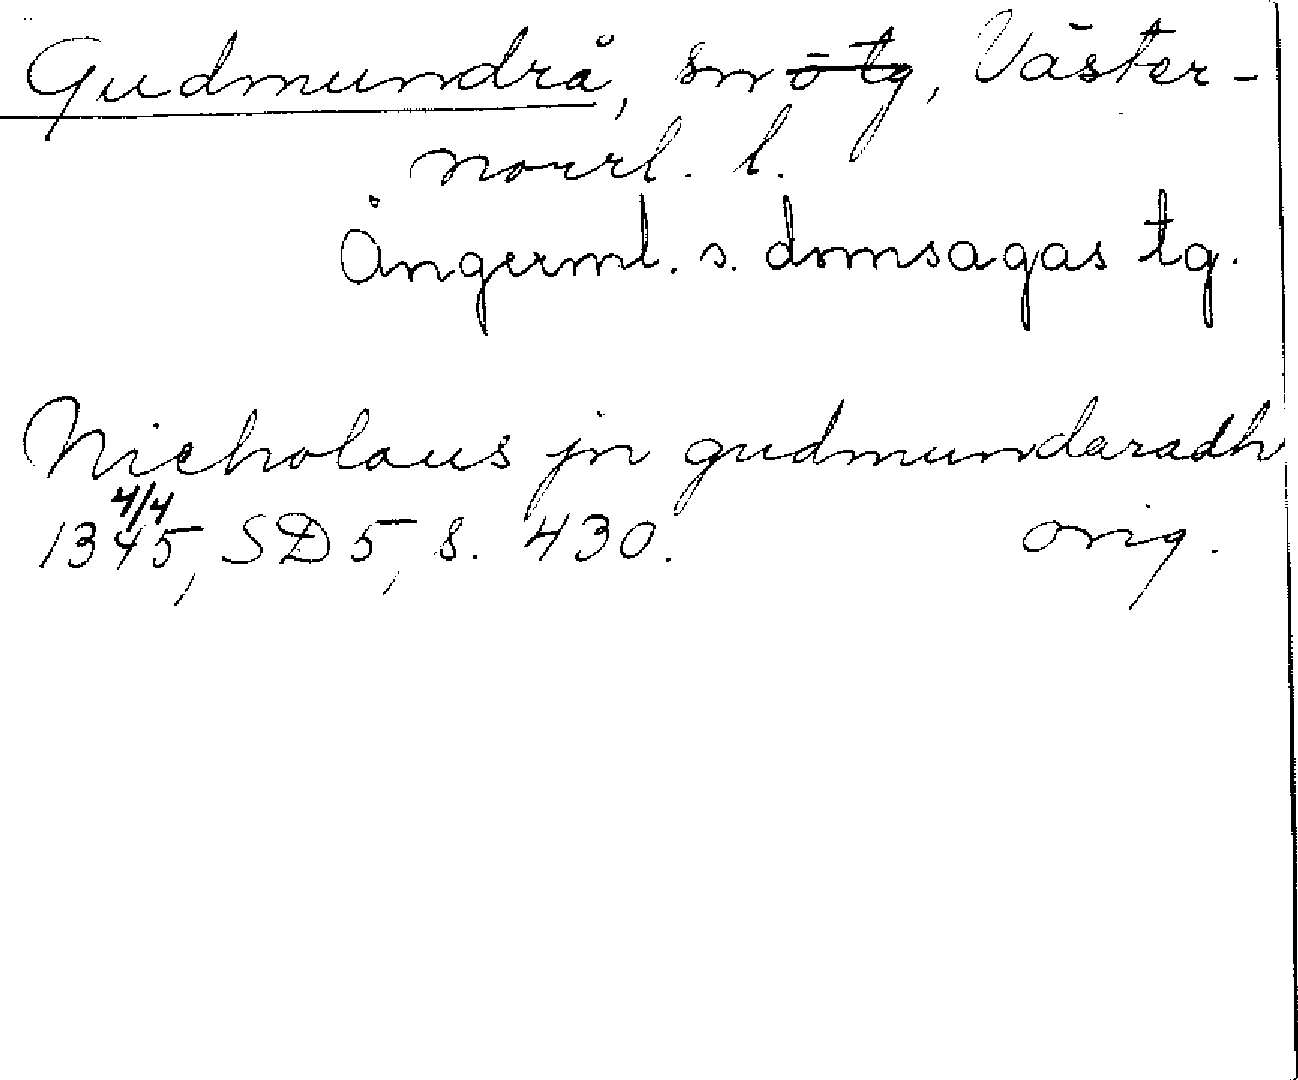 Gudmundrå, sn o tg, Väster-
norrl. l.
Ångerml. s. domsagas tg.
Nicholaus jn gudmundaradh
1345, 4/4 SD 5, s. 430. orig.